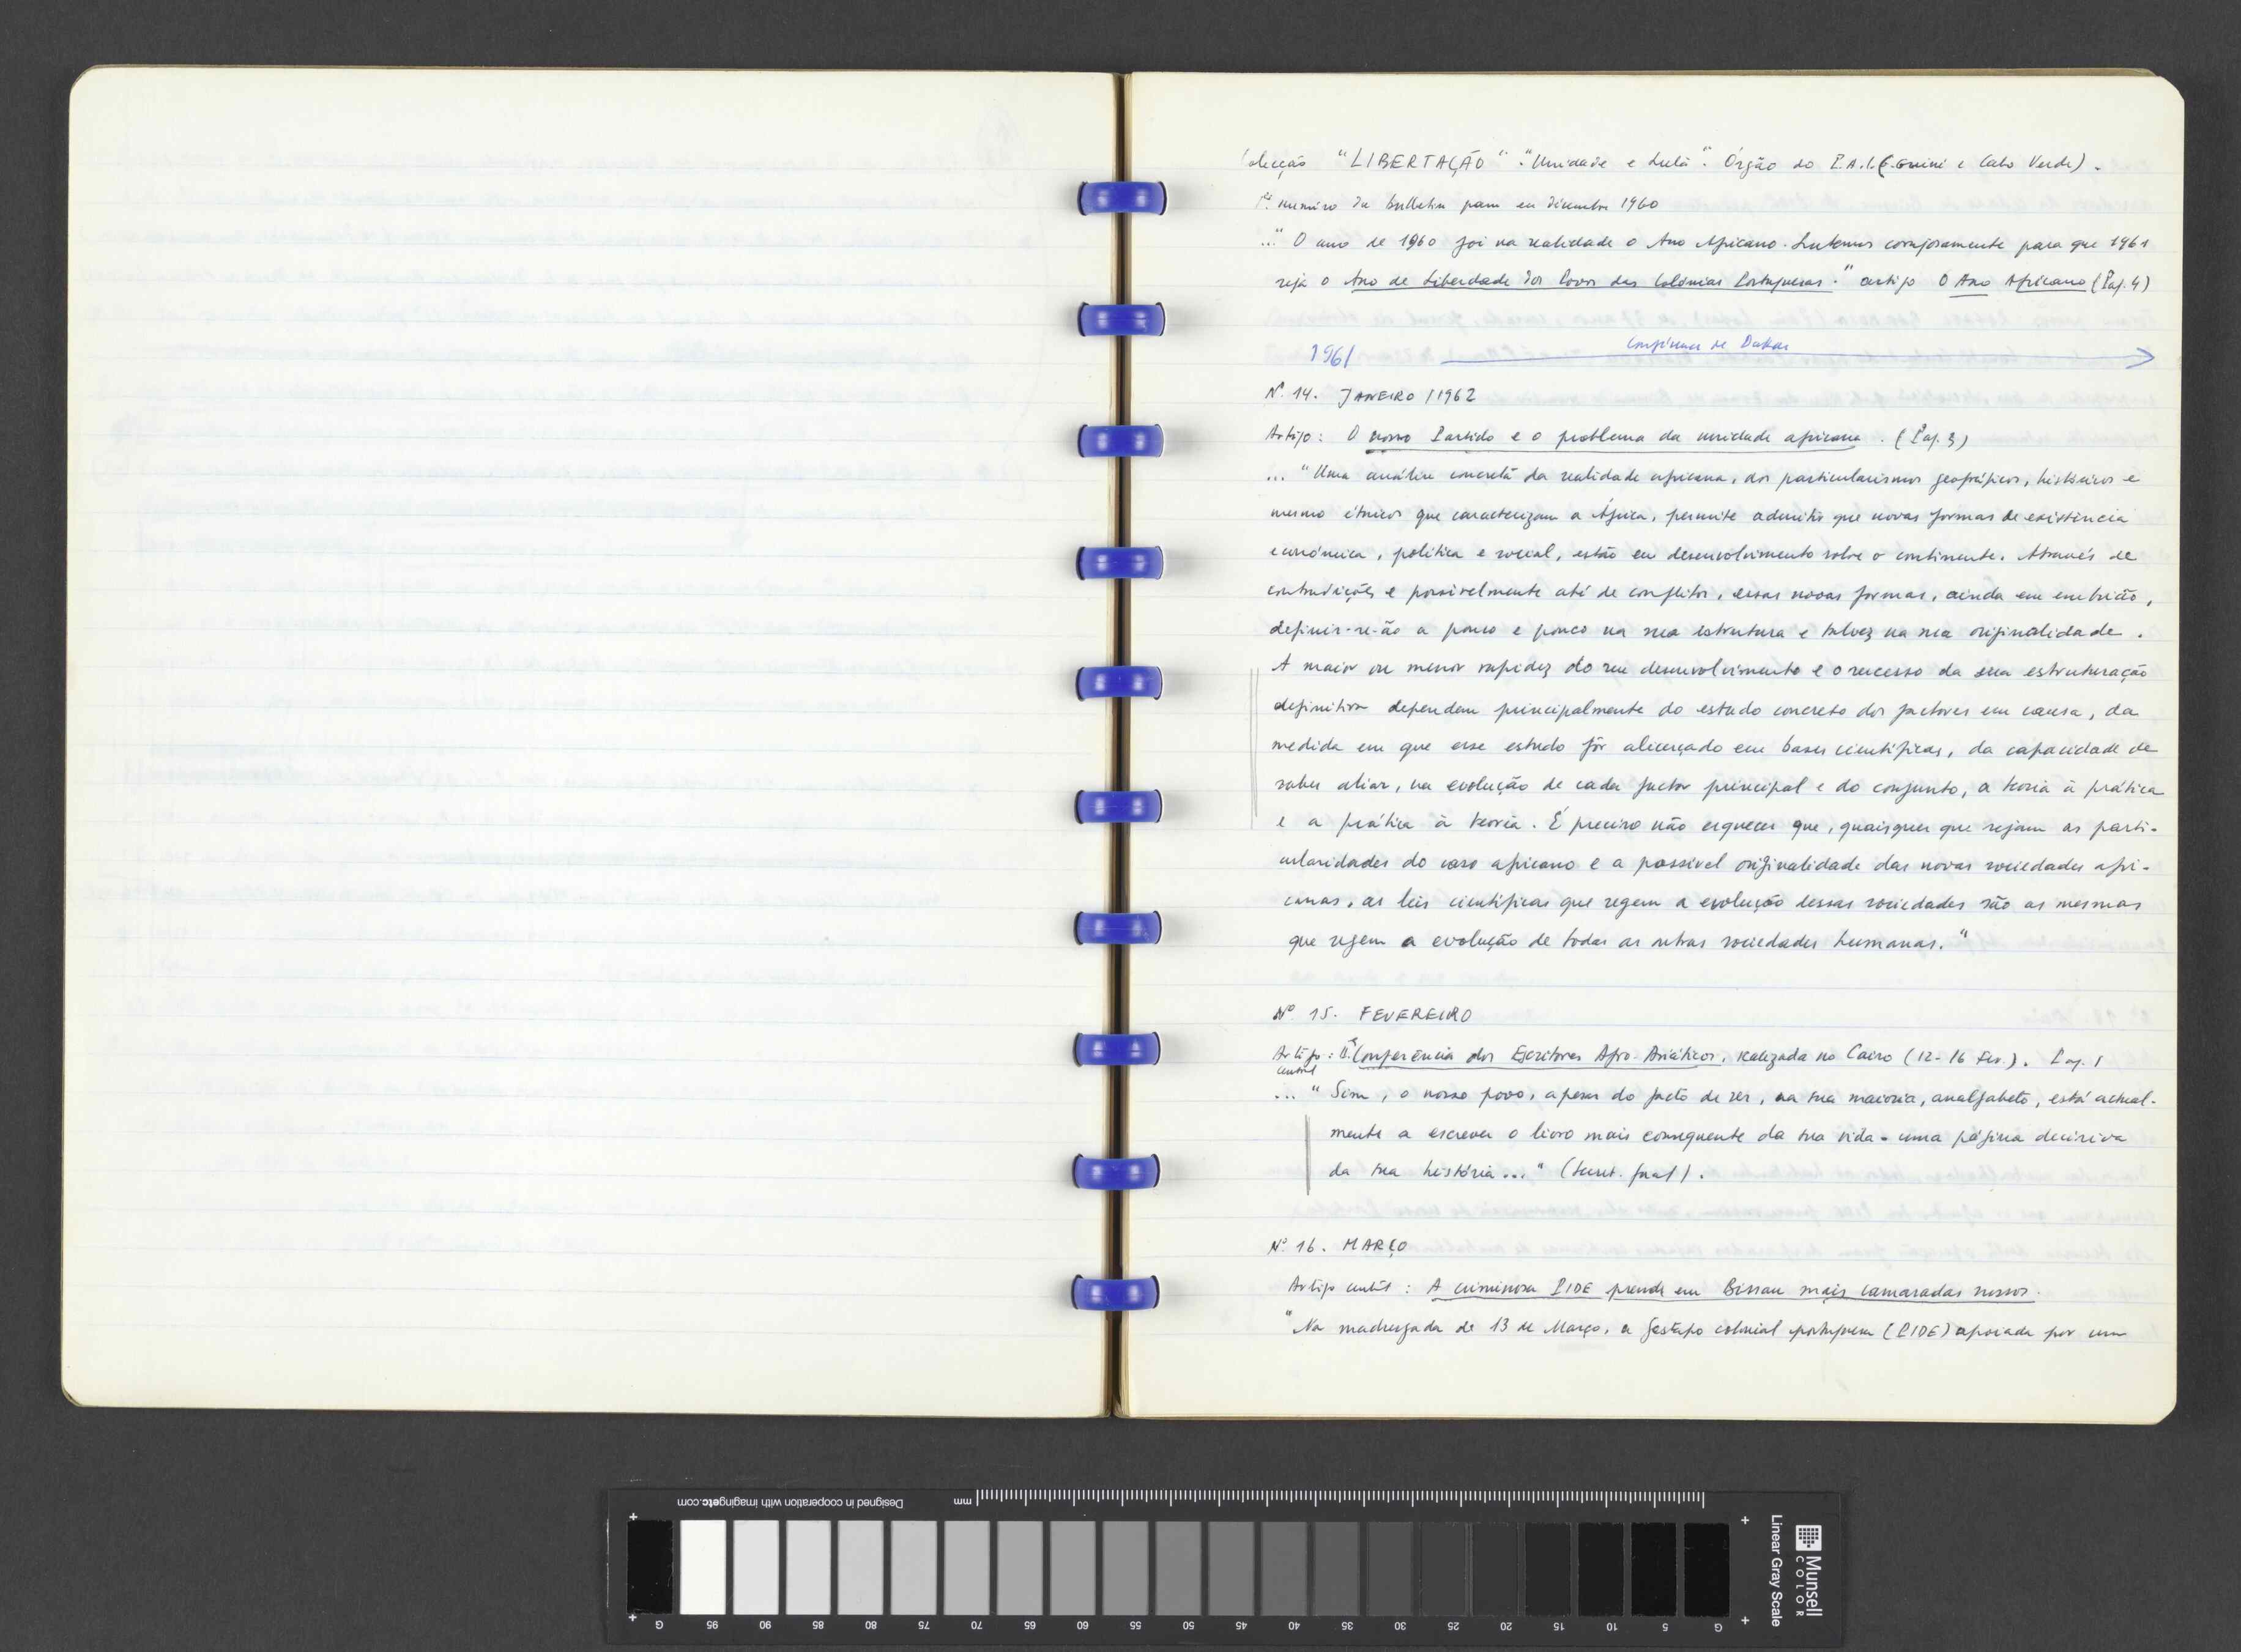 Colecção "LIBERTAÇÃO" "Unidade e Luta". Órgão do P.A.I.(Guiné e Cabo Verde).
1º número do Bulletin para em Dezembro 1960
..." O ano de 1960 foi na realidade o Ano Africano. Lutemos corajosamente para que 1961
seja o Ano de Liberdade dos Povos das Colónias Portuguesas." artigo O Ano Africano (Pag. 4)
1961 Conferência de Dakar
Nº 14. JANEIRO / 1962
Artigo: O nosso Partido e o problema da unidade africana. (Pag. 3)
... "Uma análise concreta da realidade africana, dos particularismos geográficos, históricos e
mesmo étnicos que caracterizam a África, permite admitir que novas formas de existência
económica, política e social, estão em desenvolvimento sobre o continente. Através de
contradições e possivelmente até de conflitos, essas novas formas, ainda em embrião,
definir-se-ão a pouco e pouco na sua estrutura e talvez na sua originalidade.
A maior ou menor rapidez do seu desenvolvimento e o sucesso da sua estruturação
definitiva dependem principalmente do estudo concreto dos factores em causa, da
medida em que esse estudo fôr alicerçado em bases científicas, da capacidade de
saber aliar, na evolução de cada factor principal e do conjunto, a teoria à prática
e a prática à teoria. É preciso não esquecer que, quaisquer que sejam as parti-
cularidades do caso africano e a possível originalidade das novas sociedades afri-
canas, as leis científicas que regem a evolução dessas sociedades são as mesmas
que regem a evolução de todas as outras sociedades humanas."
Nº 15. FEVEREIRO
Artigo: IIª Conferência dos Escritores Afro-Asiáticos, realizada no Cairo (12-16 Fev.). Pag. 1
central
... "Sim, o nosso povo, apesar do facto de ser, na sua maioria, analfabeto, está actual-
mente a escrever o livro mais consequente da sua vida - uma página decisiva
da sua história..." (Secret. Geral).
Nº 16. MARÇO
Artigo cent: A criminosa PIDE prende em Bissau mais camaradas nossos.
"Na madrugada de 13 de Março, a Gestapo colonial portuguesa (PIDE) apoiada por um
Designed in cooperation with imagingetc.com
mm
G 95 90 85 80 75 70 65 60 55 50 45 40 35 30 25 20 15 10 5 G
Munsell
COLOR
Linear Gray Scale